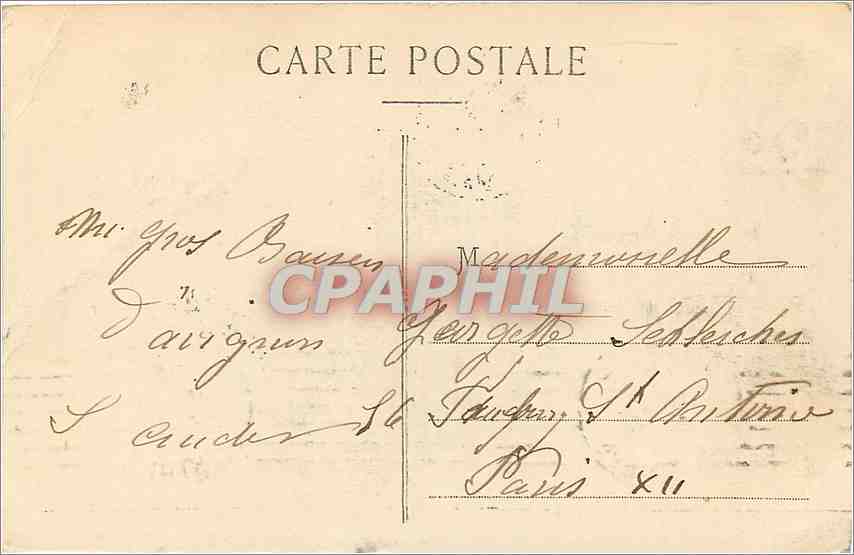 CARTE POSTALE
gros Baisers
d'avignon
Mademoiselle
Georgette
56 Faubourg St Antoine
Paris XII
CPAPHIL